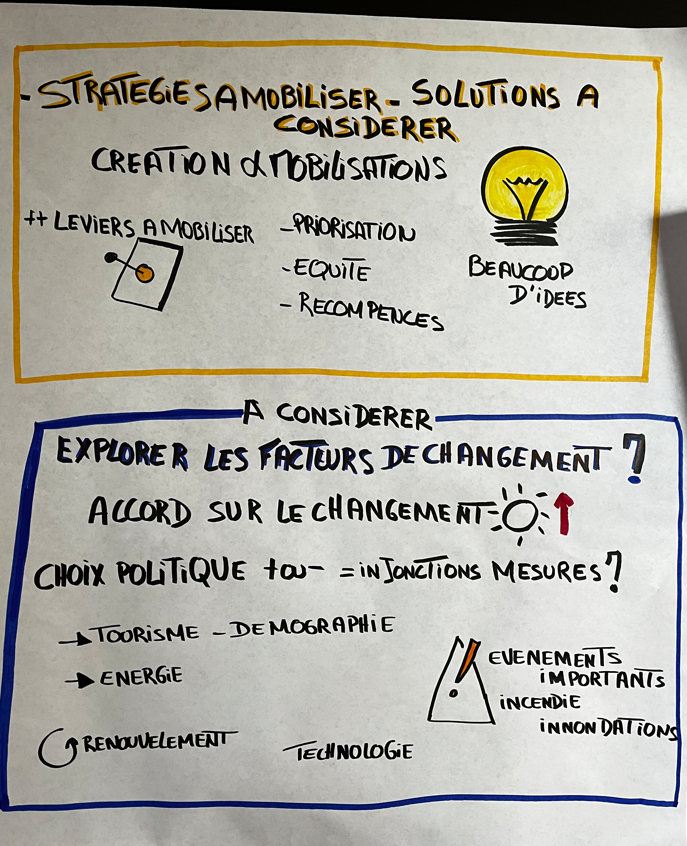 - STRATEGIES A MOBILISER - SOLUTIONS A
CONSIDERER
CREATION & MOBILISATIONS
++ LEVIERS A MOBILISER
- PRIORISATION
- EQUITE
- RECOMPENCES
BEAUCOUP
D'IDEES
A CONSIDERER
EXPLORER LES FACTEURS DE CHANGEMENT ?
ACCORD SUR LE CHANGEMENT
CHOIX POLITIQUE + ou - = INJONCTIONS MESURES ?
→ TOURISME - DEMOGRAPHIE
→ ENERGIE
EVENEMENTS
IMPORTANTS
INCENDIE
INNONDATIONS
RENOUVELEMENT
TECHNOLOGIE